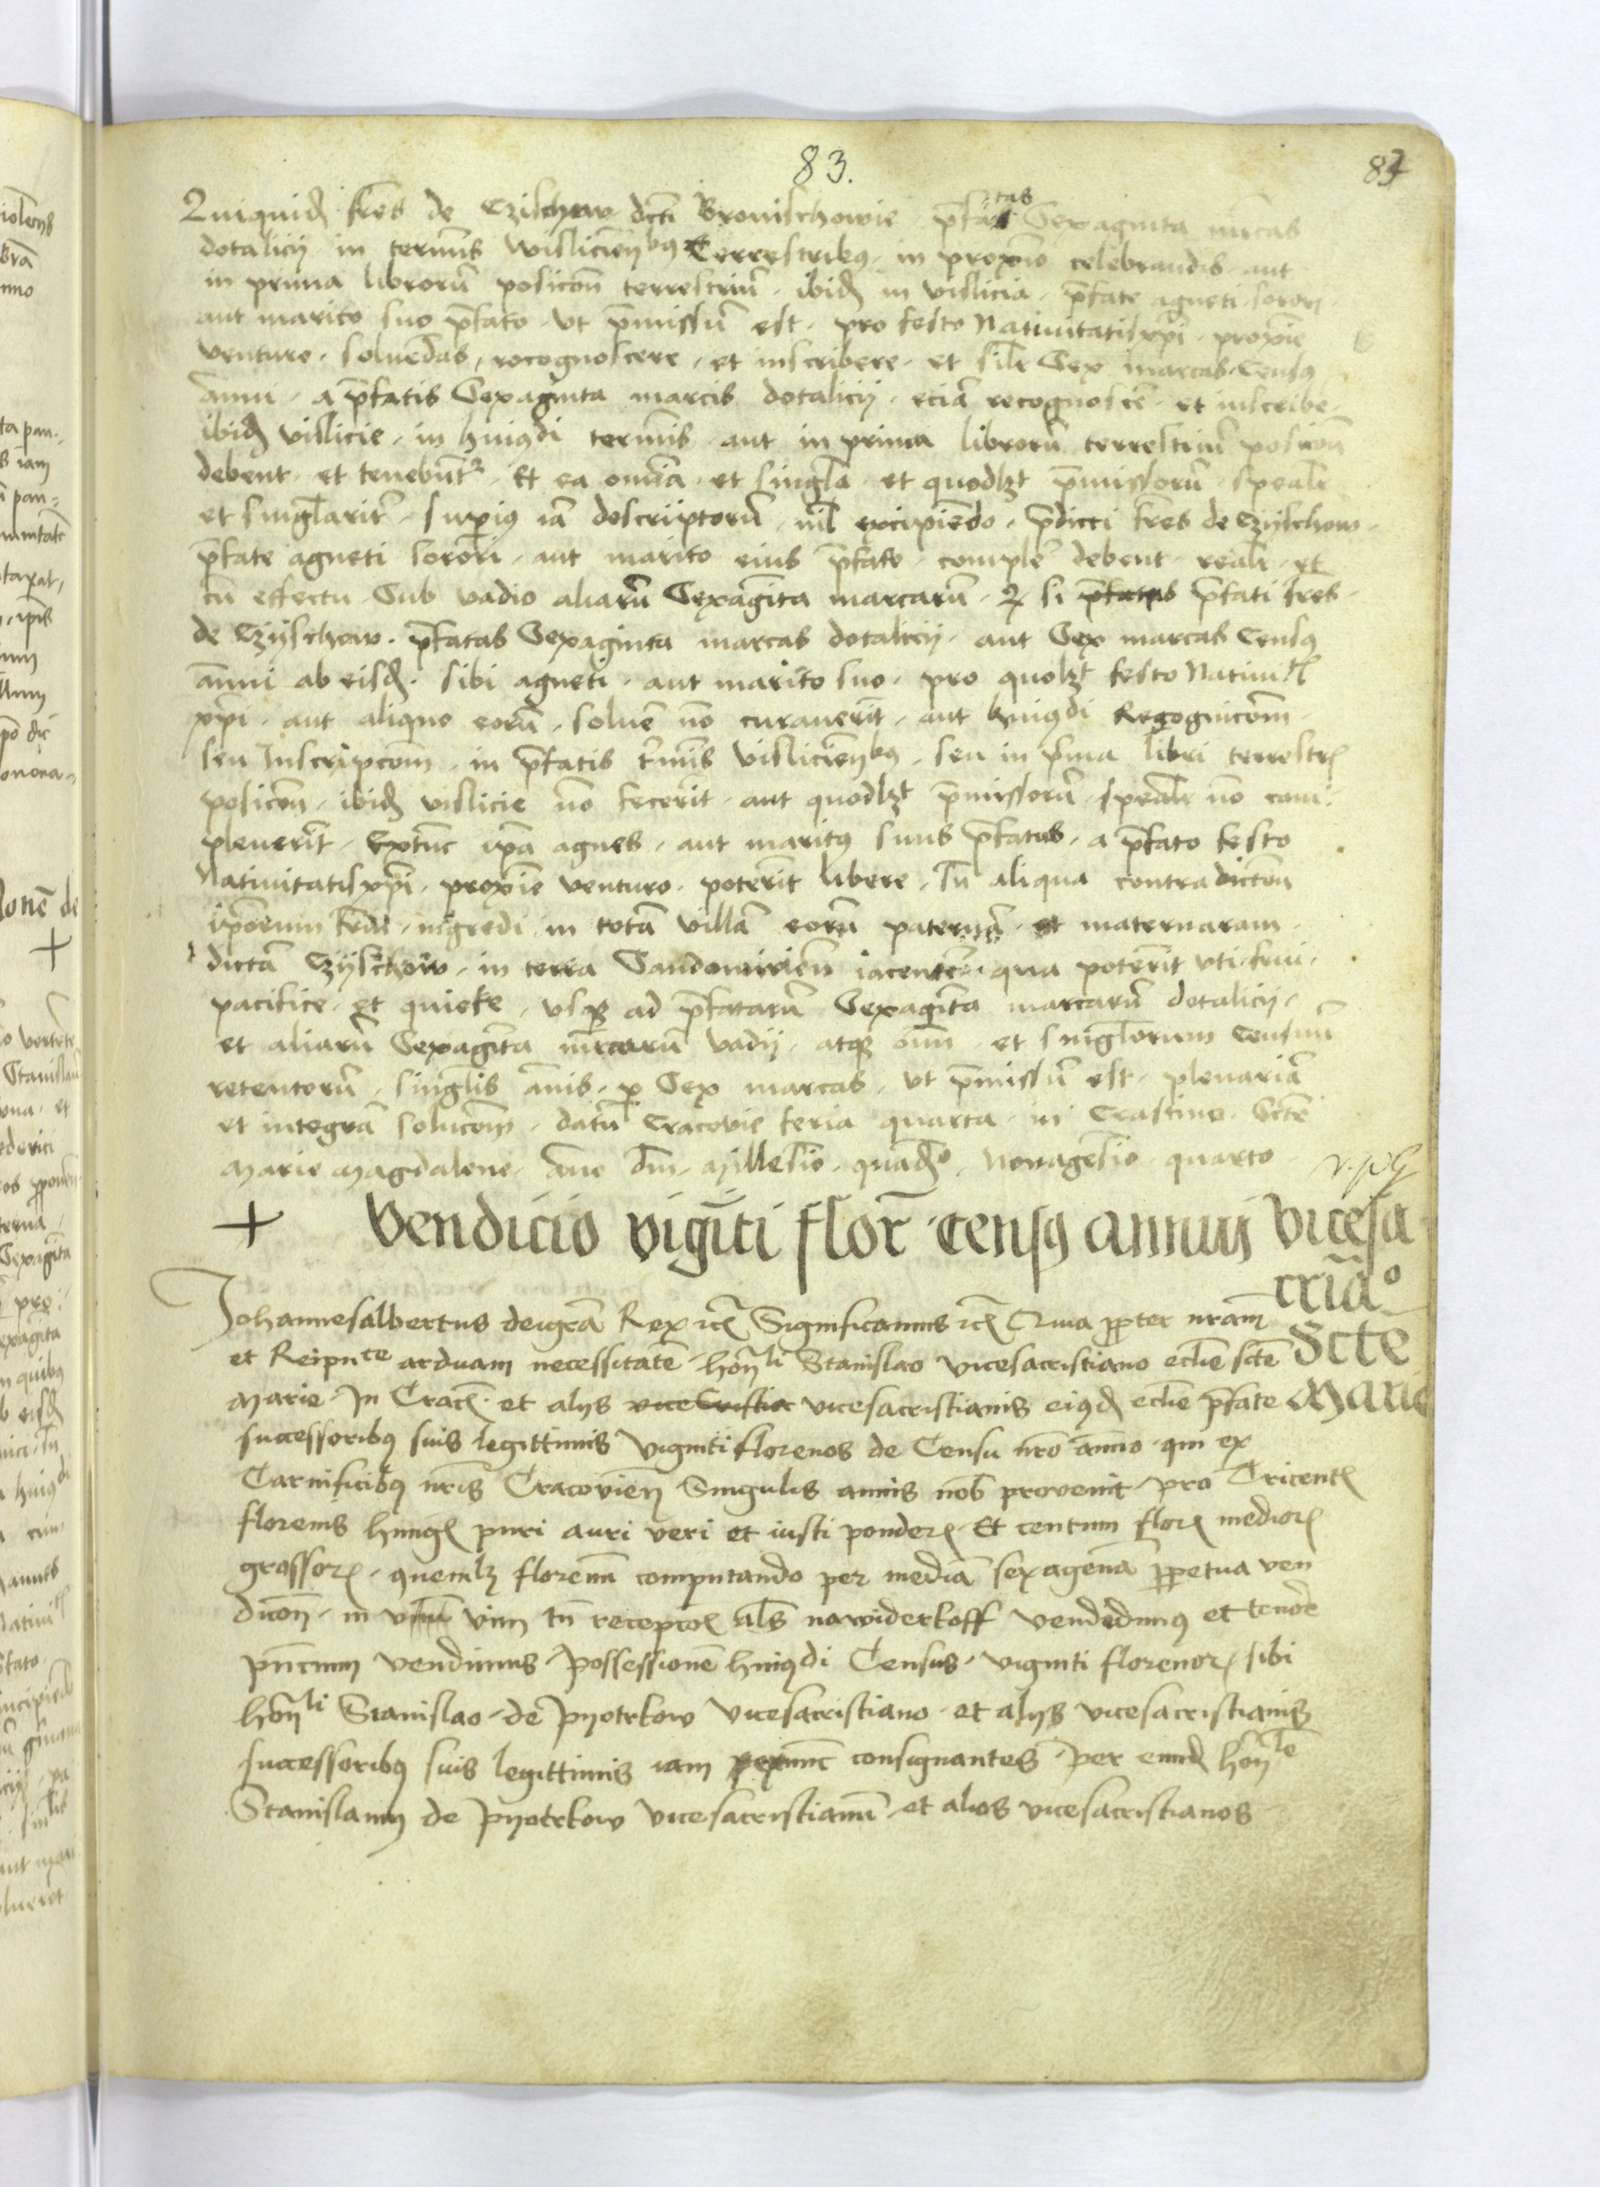 83.
84
Quiquid fres de Czischow dicti Bronischowie pfatas Sexaginta mrcas
dotalicij in termis wislicienbus Terrestribus in proximo celebrandis aut
in prima librorū posicōn terrestriū ibid in vislicia pfate agneti sorori
aut marito suo pfato vt pmissū est pro festo Natiuitatis xpi proxie
venturo soluedas recognoscere et inscribere et silr Sex marcas Census
annui a pfatis Sexaginta marcis dotalicij eciā recognosce et inscribe
ibid vislicie in huiusdi termis aut in prima librorū terrestriū posicōn
debent et tenebūtr Et ea omia et singla et quodlzt pmissorū spealr
et singlarit supius iā descriptorū nil excipiendo pdicti fres de Czyschow
pfate agneti sorori aut marito eius pfato comple debent realr et
cū effectu Sub vadio aliarū Sexagīta marcarū q si pfatas pfati fres
de Czyschow pfatas Sexaginta marcas dotalicij aut Sex marcas Census
ānui ab eisd sibi agneti aut marito suo pro quolzt festo Natiuit
xpi aut aliquo eorū solue nō curauerīt aut huiusdi Recognicōm
seu Inscripcōm in pfatis tmis vislicienbus seu in pma libri terrestr
posicōn ibid vislicie nō fecerīt aut quodlzt pmissorū spealr nō com
pleuerīt Extūc ipā agnes aut maritus suus pfatus a pfato festo
Natiuitatis xpi proxīe venturo poterīt libere sn aliqua contradictōn
ipōrum frm ingredi in totā villā eorū paternā et maternaram
dictā Czyschow in terra Sandomirien iacentē qua poterīt vti frui
pacifice et quiete vsq ad pfatarū Sexagīta marcarū dotalicij
et aliarū Sexagīta mrcarū vadij atq oīm et singlorum Censuū
retentorū singlis annis p Sex marcas vt pmissū est plenariā
et integrā solucōm datū Cracouie feria quarta in Crastino Scte
Marie Magdalene Ano dni Millesio quadro Nonagesio quarto
+ Vendicio vigīti flor census annuij vicesa
criao
Scte
Marie
Johannesalbertus dei gra Rex etc Significamus etc Quia ppter nram
et Reipuce arduam necessitatē honli Stanislao vicesacristiano eclie scte
Marie In Crac et alijs viceCristia vicesacristianis eiusd eclie pfate
successoribus suis legittimis viginti florenos de Censu nro annuo qui ex
Carnificibus nris Cracovien Singulis annis nob provenit pro Tricent
florenis hungl puri auri veri et iusti ponder Et centum flor medior
grossor quemlz florenū computando per mediā sexagenā ppetua ven
dicōn in vim tn reempcōs als nawiderkoff vendidimus et tenore
pncium vendimus Possessionē huiusdi Census viginti florenor sibi
honli Stanislao de Pyotrkow vicesacristiano et alijs vicesacristianis
successoribus suis legittimis iam extunc consignantes Per eund honle
Stanislaum de Pyotrkow vicesacristianū et alios vicesacristianos